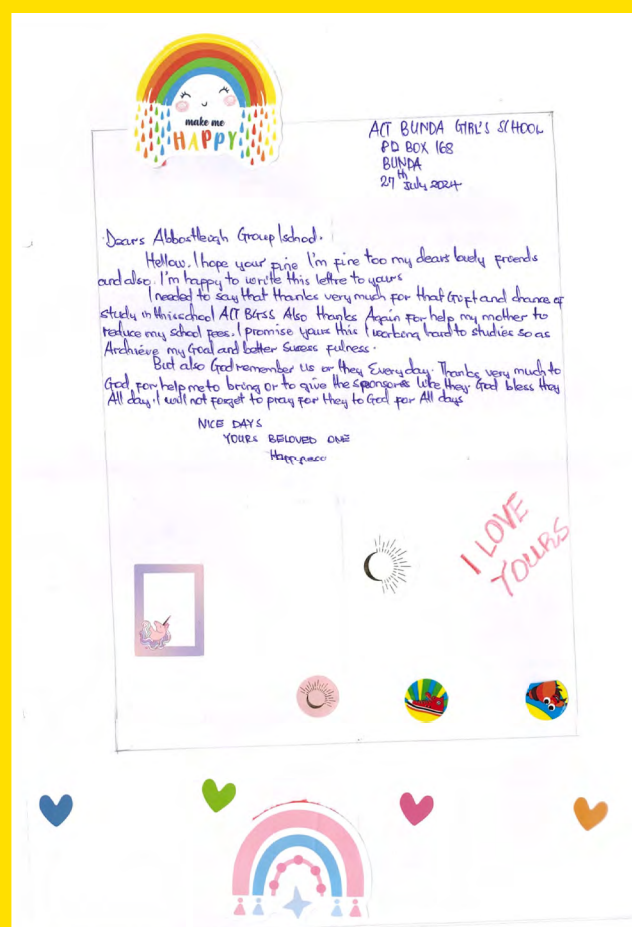 make me
HAPPY
ACT BUNDA GIRL'S SCHOOL
PO BOX 168
BUNDA
27th July 2024
Dears Abbostleigh Group School.
Hellow. I hope your fine I'm fine too my dears lovely friends
and also. I'm happy to write this lettre to yours
I needed to say that thanks very much for that Gift and chance of
study in this school ACT BGSS Also thanks Again for help my mother to
reduce my school fees. I promise yours this I working hard to studies so as
Archieve my Goal and better Sucess fulness.
But also God remember us or they Everyday. Thanks very much to
God, for help me to bring or to give the sponsores like they. God bless they
All day. I will not forget to pray for they to God for All days
NICE DAYS
YOURS BELOVED ONE
I LOVE
YOURS